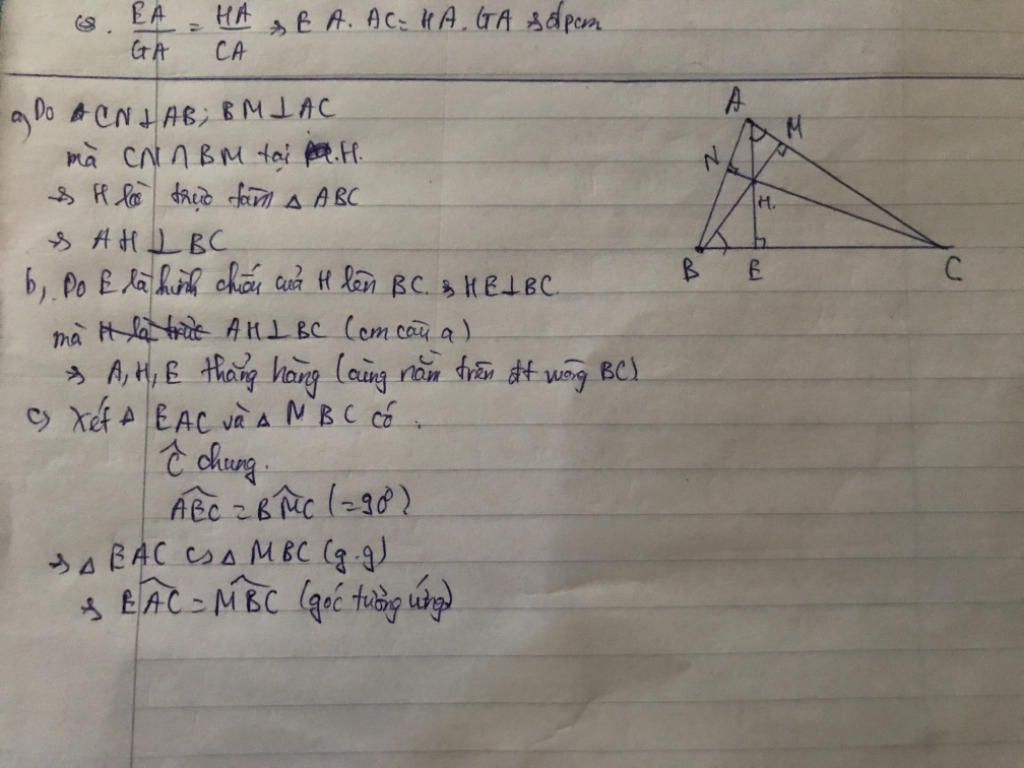 ⇔. EA/GA = HA/CA ⇒ EA.AC = HA.GA ⇒ đpcm
a, Do CN⊥AB; BM⊥AC
mà CN∩BM tại H.
⇒ H là trực tâm △ABC
⇒ AH⊥BC
b, Do E là hình chiếu của H lên BC. ⇒ HE⊥BC.
mà AH⊥BC (cm câu a)
⇒ A,H,E thẳng hàng (cùng nằm trên đt vuông BC)
c) Xét △EAC và △MBC có.
Ĉ chung.
AEC = BMC (=90°)
⇒ △EAC ∽ △MBC (g.g)
⇒ EAC = MBC (góc tương ứng)
A
M
N
H.
B E C